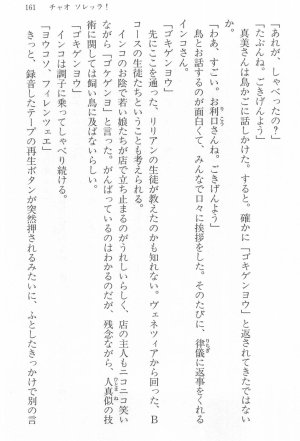 161　チャオ ソレッラ！
「あれが、しゃべったの？」
「たぶんね。ごきげんよう」
真美さんは鳥かごに話しかけた。すると。確かに「ゴキゲンヨウ」と返されてきたではない
か。
「わあ、すごい。お利口さんね。ごきげんよう」
鳥とお話するのが面白くて、みんなで口々に挨拶をした。そのたびに、律儀に返事をくれる
インコさん。
「ゴキゲンヨウ」
先にここを通った、リリアンの生徒が教えたのかも知れない。ヴェネツィアから回った、B
コースの生徒たちということも考えられる。
インコのお陰で若い娘たちが店で立ち止まるのがうれしいらしく、店の主人もニコニコ笑い
ながら「ゴケゲンヨ」と言った。がんばっているのはわかるのだが、残念ながら、人真似の技
術に関しては飼い鳥に及ばないらしい。
インコは調子に乗ってしゃべり続ける。
「ヨウコソ、フィレンツェエ」
きっと、録音したテープの再生ボタンが突然押されるみたいに、ふとしたきっかけで別の言